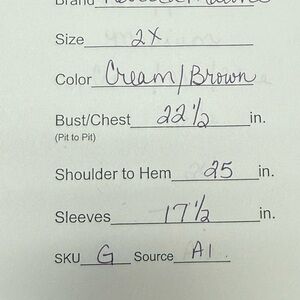 Brand
Size 2X
Color Cream/Brown
Bust/Chest 22 1/2 in.
(Pit to Pit)
Shoulder to Hem 25 in.
Sleeves 17 1/2 in.
SKU G Source A1